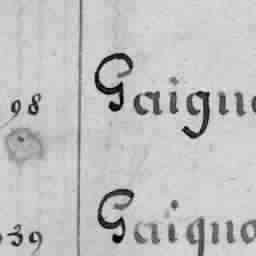 98 Gaigno
939 Gaigno